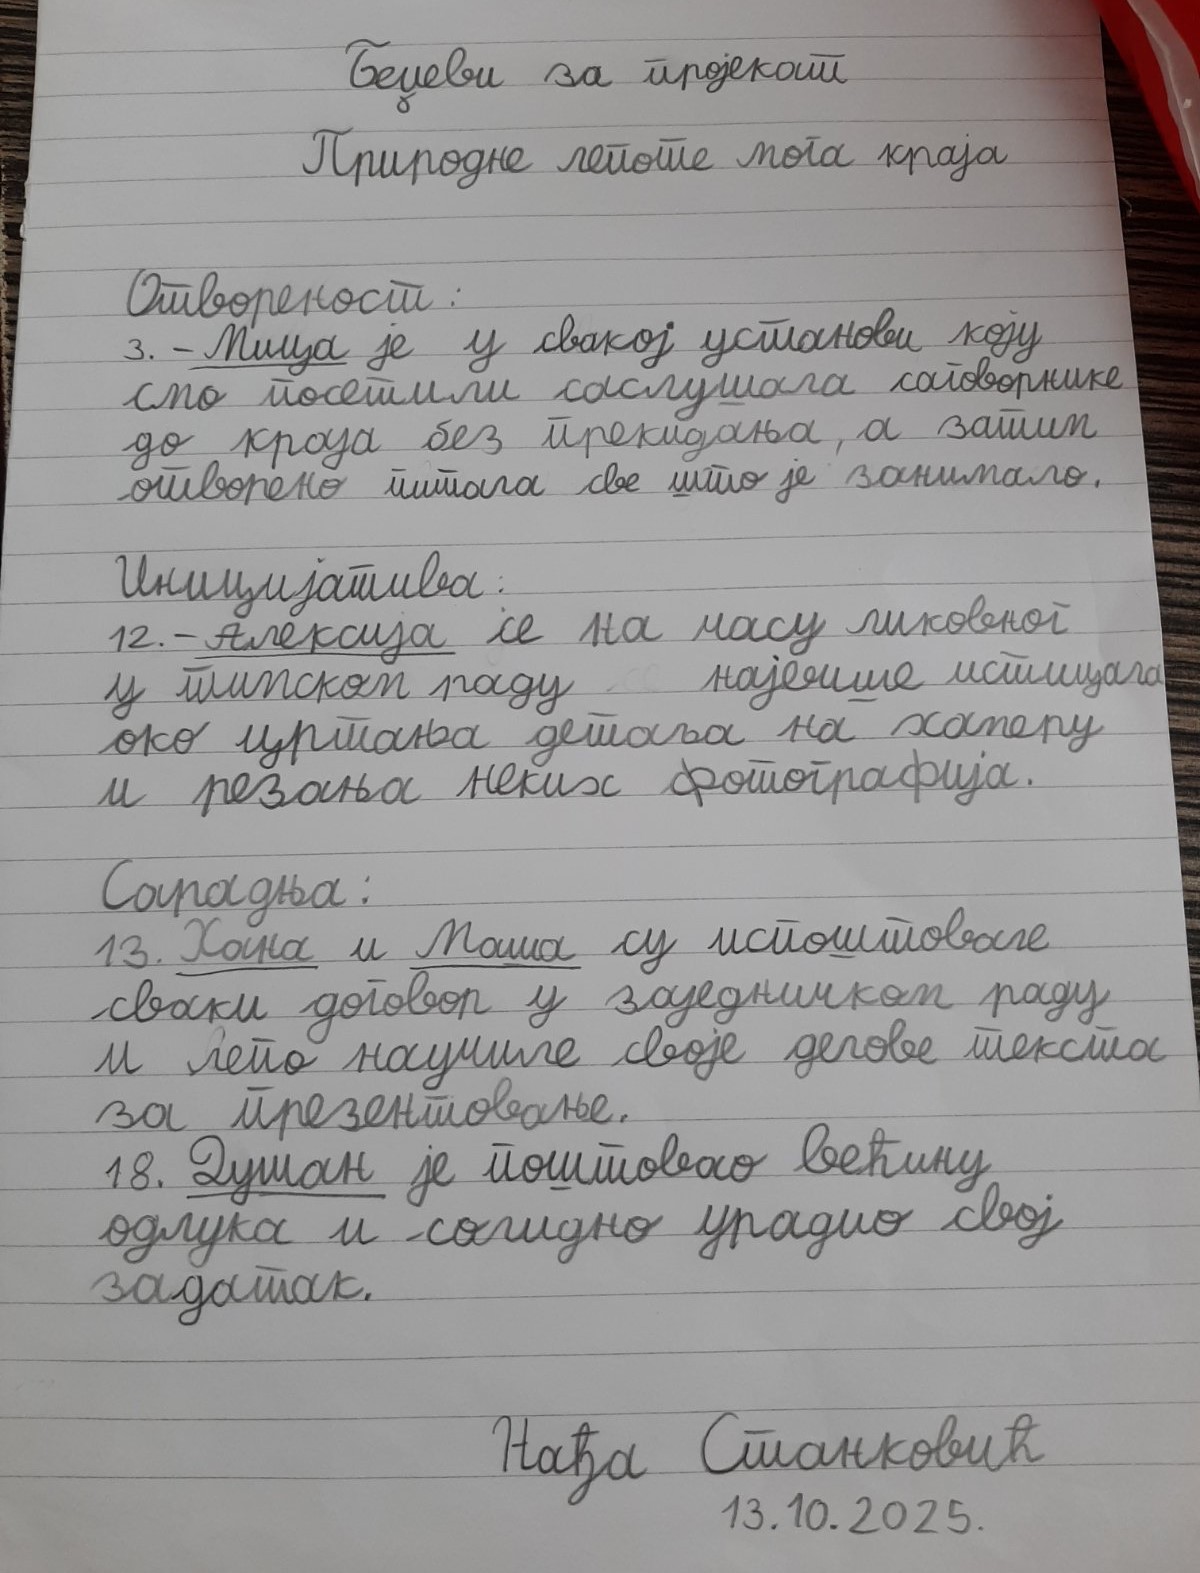 Беџеви за пројекат
Природне лепоте мога краја
Отвореност:
3. – Мица је у свакој установи коју
смо посетили саслушала саговорнике
до краја без прекидања, а затим
отворено питала све што је занимало.
Иницијатива:
12. – Алексија се на часу ликовног
у тимском раду највише истицала
око цртања детаља на хамеру
и резања неких фотографија.
Сарадња:
13. Хана и Маша су испоштовале
сваки договор у заједничком раду
и лепо научиле своје делове текста
за презентовање.
18. Душан је поштовао већину
одлука и солидно урадио свој
задатак.
Нађа Станковић
13.10.2025.